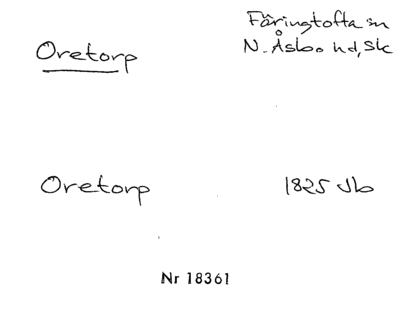 Oretorp
Färingtofta sn
N. Åsbo hd, Sk
Oretorp
1825 Jb
Nr 18361